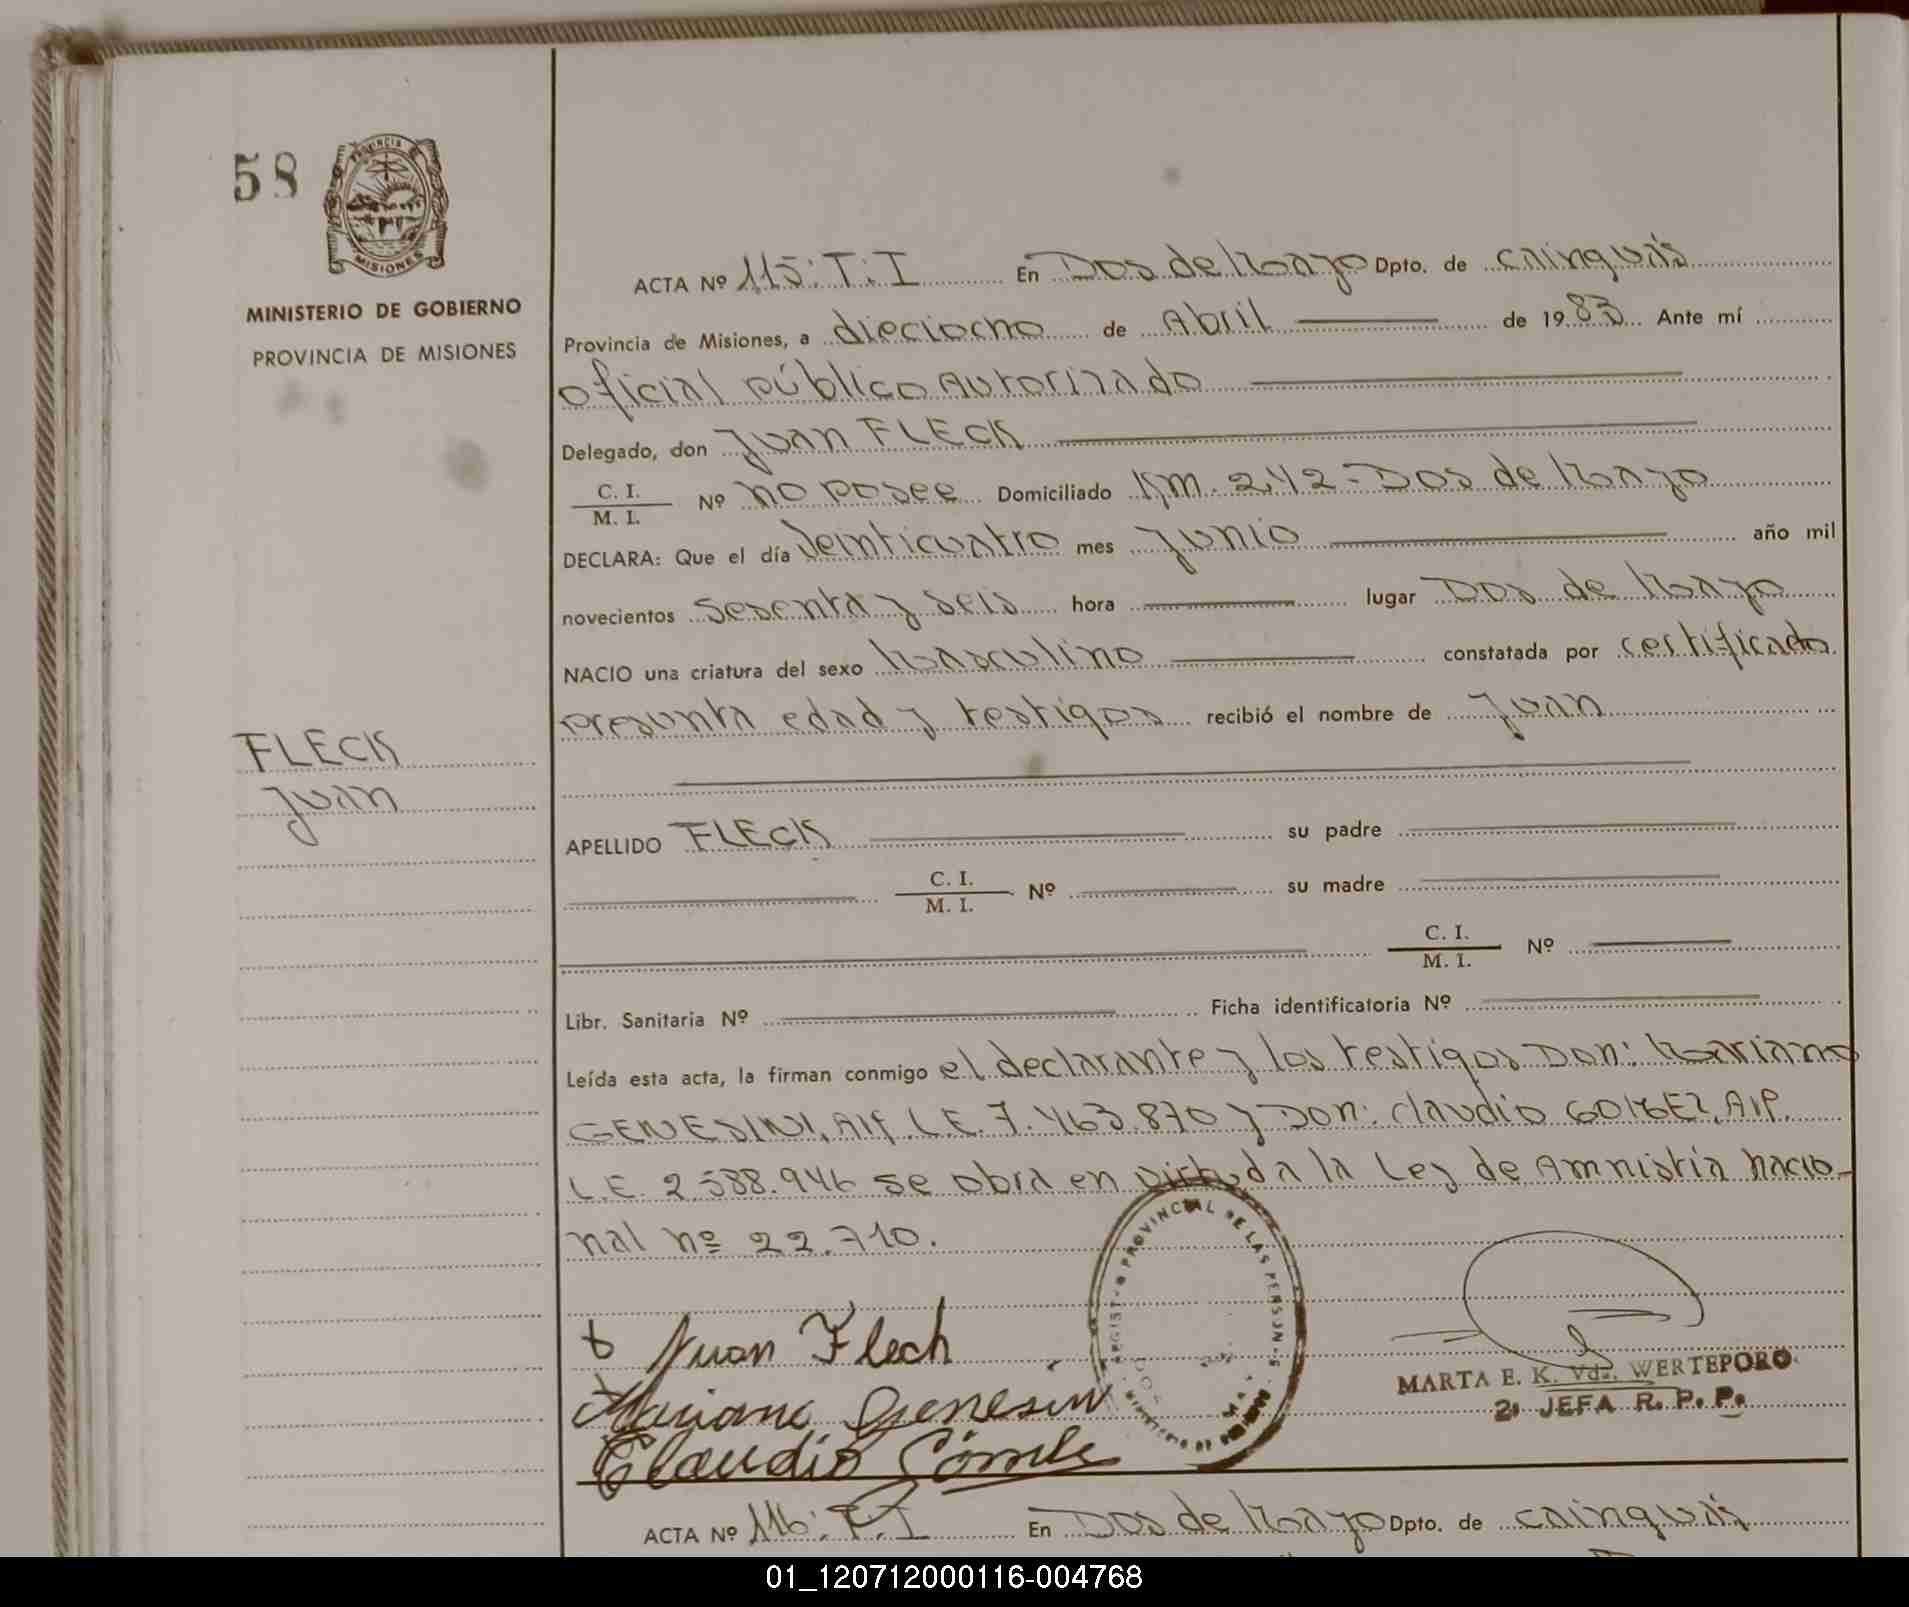 58
PROVINCIA DE
MISIONES
MINISTERIO DE GOBIERNO
PROVINCIA DE MISIONES
ACTA Nº 115: T: I En Dos de Mayo Dpto. de cainguás
Provincia de Misiones, a dieciocho de Abril de 1983 Ante mí
oficial público Autorizado
Delegado, don Juan FLECK
C. I.
M. I. Nº no posee Domiciliado Km. 242-Dos de Mayo
DECLARA: Que el día Veinticuatro mes Junio año mil
novecientos sesenta y seis hora lugar Dos de Mayo
NACIO una criatura del sexo Masculino constatada por certificado
presunta edad y testigos recibió el nombre de Juan
FLECK
Juan
APELLIDO FLECK su padre
C. I.
M. I. Nº su madre
C. I.
M. I. Nº
Libr. Sanitaria Nº Ficha identificatoria Nº
Leída esta acta, la firman conmigo el declarante y los testigos Don: Mariano
GENESINI, L.E. 7.463.870 y Don: claudio GOMEZ, A.I.P.
L.E. 2.588.946 se obra en a la Ley de Amnistía nacio-
nal nº 22.710.
Juan Flech
Mariano Genesin
Claudio
PROVINCIAL DE LAS PERSONAS
MARTA E. K. Vda. WERTEPORO
2ª JEFA R. P. P.
ACTA Nº 116: T: I En Dos de Mayo Dpto. de cainguás
01_120712000116-004768